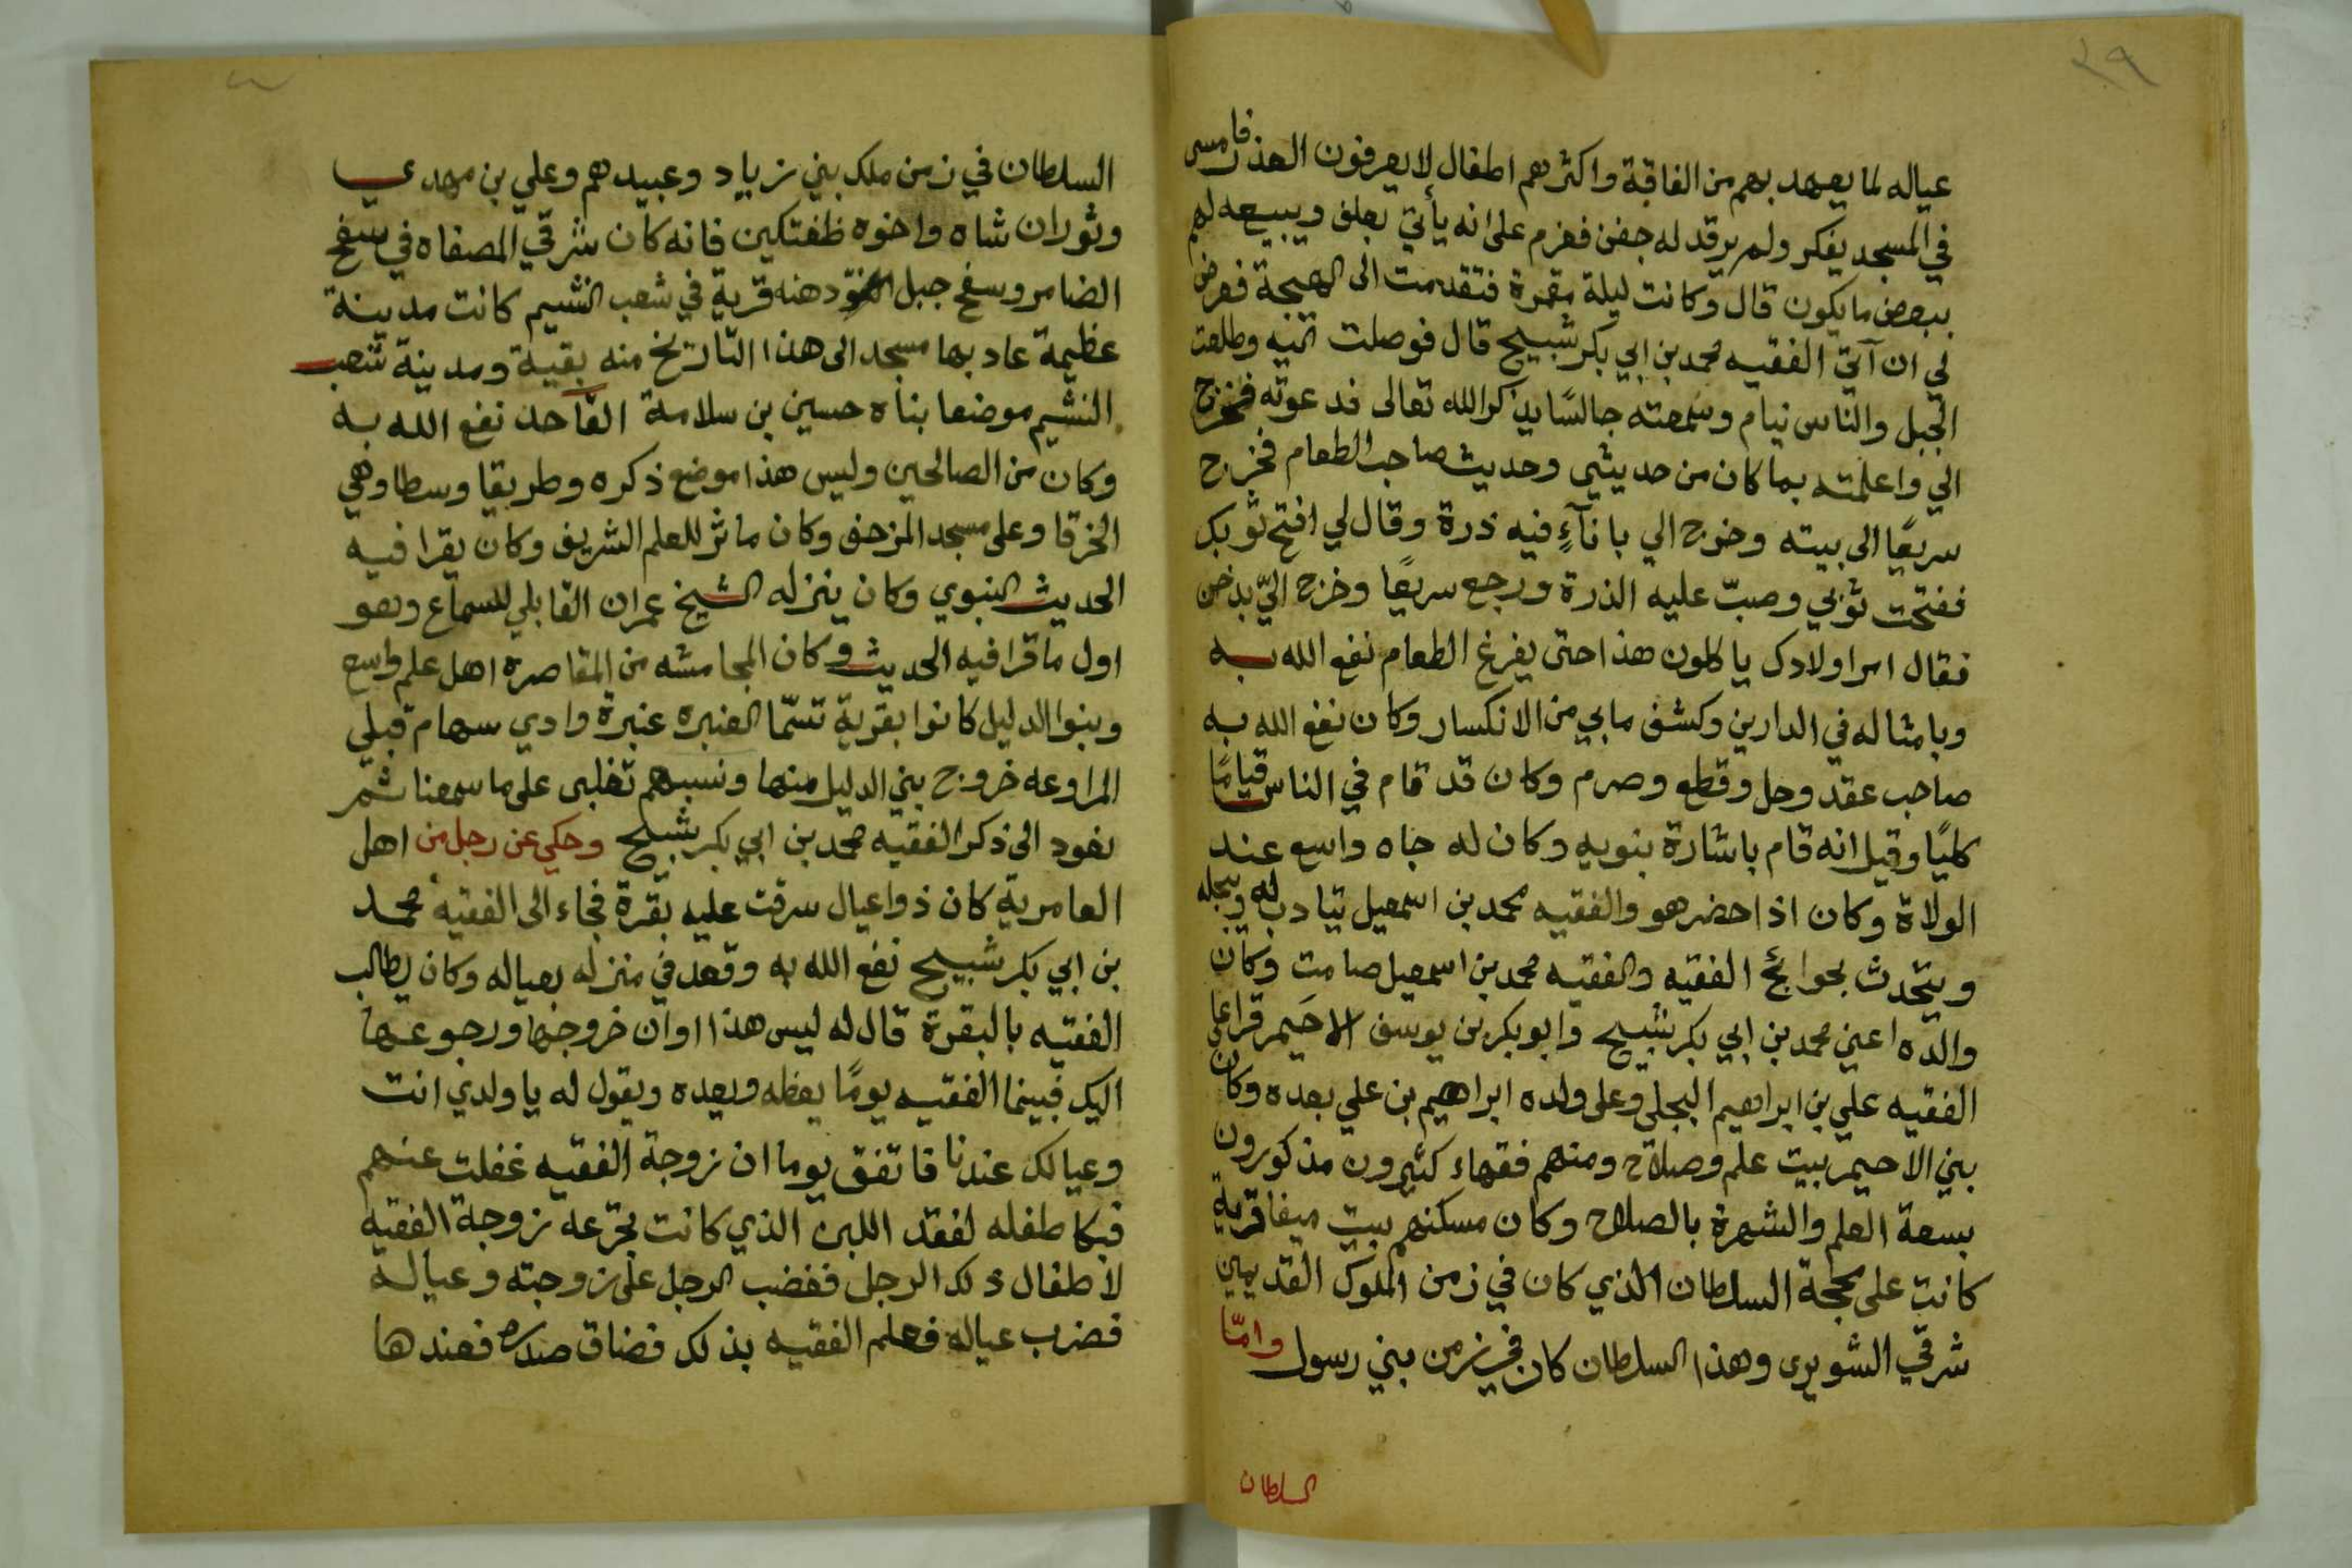 ٢٩
عياله لما يعهد بهم من الفاقة واكثرهم اطفال لا يعرفون العذر فامسى
في المسجد يفكر ولم يرقد له جفن فعزم على انه يأتي بعلف ويبيعه لهم
ببعض ما يكون قال وكانت ليلة مقمرة فتقدمت الى الهيجة فعرض
لي ان آتي الفقيه محمد بن ابي بكر شبيح قال فوصلت اليه وطلعت
الجبل والناس نيام وسمعته جالسًا يذكر الله تعالى فدعوته فخرج
الي واعلمته بما كان من حديثي وحديث صاحب الطعام فخرج
سريعًا الى بيته وخرج الي باناءٍ فيه ذرة وقال لي افتح ثوبك
ففتحت ثوبي وصبّ عليه الذرة ورجع سريعًا وخرج اليّ بدخن
فقال امر اولادك ياكلون هذا حتى يفرغ الطعام نفع الله به
وبامثاله في الدارين وكشف ما بي من الانكسار وكان نفع الله به
صاحب عقد وحل وقطع وصرم وكان قد قام في الناس قيامًا
كليًا وقيل انه قام باشارة بنويه وكان له جاه واسع عند
الولاة وكان اذا حضر هو والفقيه محمد بن اسمعيل تيادب له ويبجله
ويتحدث بحوائج الفقيه والفقيه محمد بن اسمعيل صامت وكان
والده اعني محمد بن ابي بكر شبيح وابو بكر بن يوسف الاحيمر قرا على
الفقيه علي بن ابراهيم البجلي وعلى ولده ابراهيم بن علي بعده وكان
بني الاحيمر بيت علم وصلاح ومنهم فقهاء كثيرون مذكورون
بسعة العلم والشهرة بالصلاح وكان مسكنهم بيت ميفا قرية
كانت على محجة السلطان الذي كان في زمن الملوك القديمين
شرقي الشويرى وهذا السلطان كان في زمن بني رسول وامّا
السلطان
السلطان في زمن ملك بني زياد وعبيدهم وعلي بن مهدي
وتوران شاه واخوه طغتكين فانه كان شرقي المصفاه في سفح
الضامر وسفح جبل دهنه قرية في شعب النشيم كانت مدينة
عظيمة عاد بها مسجد الى هذا التاريخ منه بقية ومدينة شعب
النشيم موضعا بناه حسين بن سلامة القاحد نفع الله به
وكان من الصالحين وليس هذا موضع ذكره وطريقا وسطا وهي
الخرقا وعلى مسجد المزحف وكان ماثر للعلم الشريف وكان يقرا فيه
الحديث النبوي وكان ينزله الشيخ عمران القابلي للسماع وهو
اول ما قرا فيه الحديث وكان المجامشه من المقاصرة اهل علم واسع
وبنوا الدليل كانوا بقرية تسمّا العنبره عنبرة وادي سهام قبلي
المراوعه خروج بني الدليل منها ونسبهم تغلبى على ما سمعنا ثم
نعود الى ذكر الفقيه محمد بن ابي بكر شبيح وحكي عن رجل من اهل
العامرية كان ذوا عيال سرقت عليه بقرة فجاء الى الفقيه محمد
بن ابي بكر شبيح نفع الله به وقعد في منزله بعياله وكان يطالب
الفقيه بالبقرة قال له ليس هذا اوان خروجها ورجوعها
اليك فبينما الفقيه يومًا يعظه ويعده ويقول له يا ولدي انت
وعيالك عندنا فاتفق يوما ان زوجة الفقيه غفلت عنهم
فبكا طفله لفقد اللبن الذي كانت تجرعه زوجة الفقيه
لاطفال ذلك الرجل فغضب الرجل على زوجته وعياله
فضرب عياله فعلم الفقيه بذلك فضاق صدره فعندها